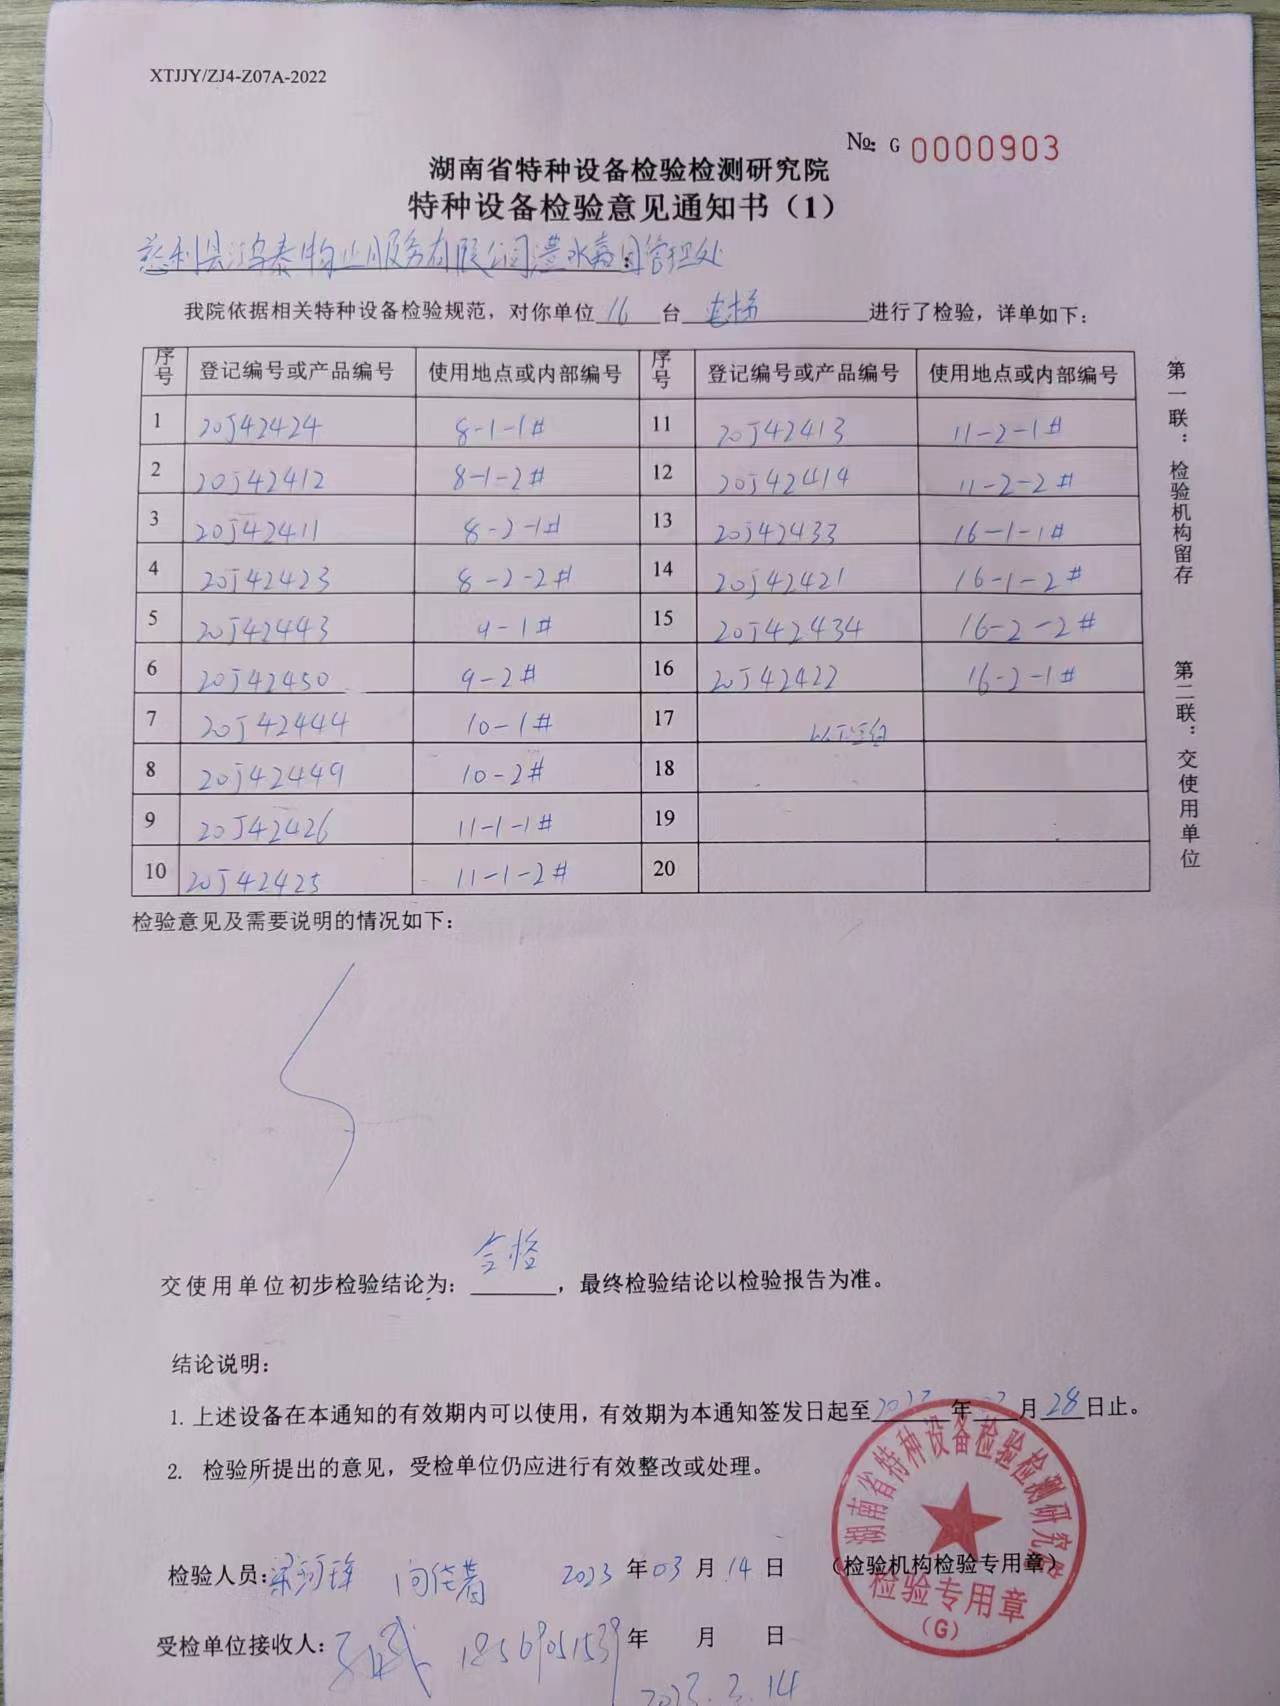 XTJJY/ZJ4-Z07A-2022
№: G 0000903
湖南省特种设备检验检测研究院
特种设备检验意见通知书（1）
慈利县鸿泰物业服务有限公司澧水嘉园管理处
我院依据相关特种设备检验规范，对你单位 16 台 电梯 进行了检验，详单如下：
序号 登记编号或产品编号 使用地点或内部编号 序号 登记编号或产品编号 使用地点或内部编号
1 20J42424 8-1-1# 11 20J42413 11-2-1#
2 20J42412 8-1-2# 12 20J42414 11-2-2#
3 20J42411 8-2-1# 13 20J42433 16-1-1#
4 20J42423 8-2-2# 14 20J42421 16-1-2#
5 20J42443 9-1# 15 20J42434 16-2-2#
6 20J42450 9-2# 16 20J42422 16-2-1#
7 20J42444 10-1# 17 以下空白
8 20J42449 10-2# 18
9 20J42426 11-1-1# 19
10 20J42425 11-1-2# 20
第一联：检验机构留存
第二联：交使用单位
检验意见及需要说明的情况如下：
交使用单位初步检验结论为：合格，最终检验结论以检验报告为准。
结论说明：
1. 上述设备在本通知的有效期内可以使用，有效期为本通知签发日起至2023年03月28日止。
2. 检验所提出的意见，受检单位仍应进行有效整改或处理。
检验人员： 2023年03月14日 （检验机构检验专用章）
受检单位接收人： 年 月 日
2023.3.14
湖南省特种设备检验检测研究院
检验专用章
（G）